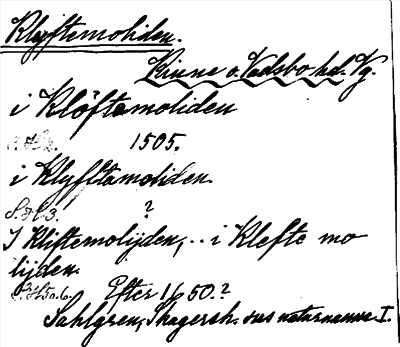 Klyftemoliden.
Kinne o. Vadsbo hd. Vg.
i Klöftamoliden
1505.
i Klyfttamoliden.
S. H 3. ?
I Kliftemolijden, .. i Klefte mo
lijden.
Efter 1650.?
Sahlgren, Skagersh. sns naturnamn I.